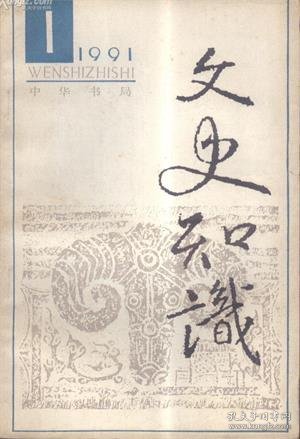 1
1991
WENSHIZHISHI
中华书局
文史知識
孔夫子旧书网